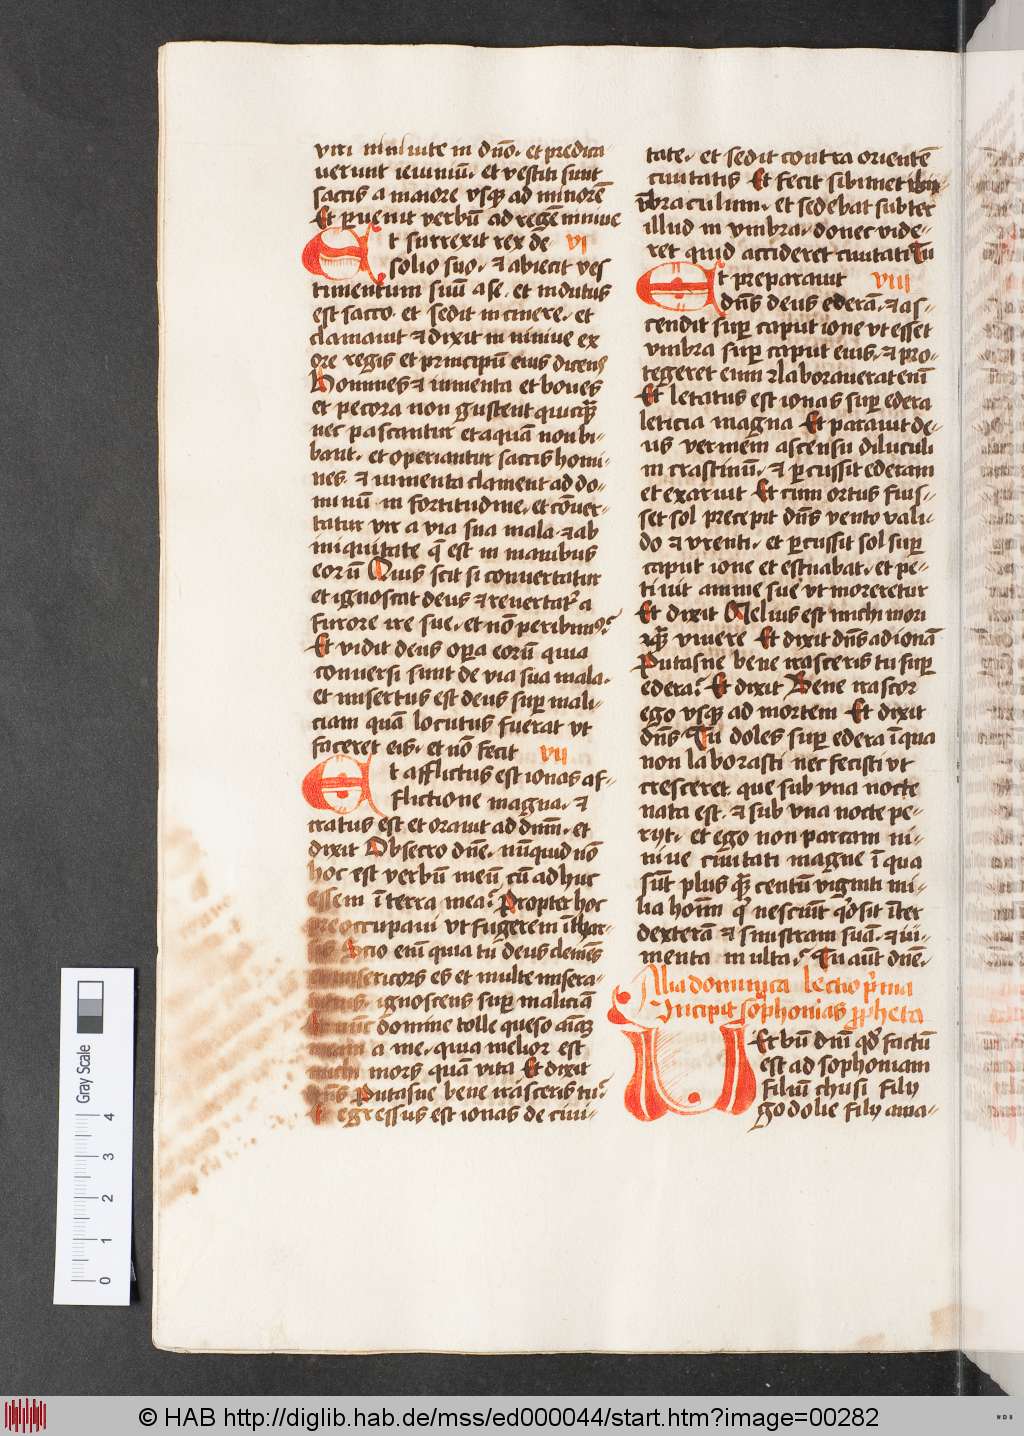 viri niniuite in dno̅. et predica
uerunt ieiuniu̅. et vestiti sunt
saccis a maiore vsqꝫ ad minore̅
Et ꝑuenit verbu̅ ad rege̅ niniue
Et surrexit rex de vi
solio suo. ⁊ abiecit ves
timentum suu̅ a se. et indutus
est sacco. et sedit in cinere. et
clamauit ⁊ dixit in niniue ex
ore regis et principu̅ eius dicens
Homines ⁊ iumenta et boues
et pecora non gustent quicqꝫ
nec pascantur et aqua̅ non bi-
bant. et operiantur saccis homi-
nes. ⁊ iumenta clament ad do-
minu̅ in fortitudine. et co̅uer-
tatur vir a via sua mala. ⁊ ab
iniquitate q̅ est in manibus
eoru̅ Quis scit si conuertatur
et ignoscat deus ⁊ reuertat᷑ a
furore ire sue. et no̅ peribimꝰ?
Et vidit deus oꝑa eoru̅ quia
conuersi sunt de via sua mala.
et misertus est deus suꝑ mali-
ciam qua̅ locutus fuerat vt
faceret eis. et no̅ fecit vii
Et afflictus est ionas af-
flictione magna. ⁊
iratus est et orauit ad dnm̅. et
dixit Obsecro dne̅. nu̅quid no̅
hoc est verbu̅ meu̅ cu̅ adhuc
essem i̅ terra mea? Propter hoc
preoccupaui vt fugerem i̅ thar-
sis Scio eni̅ quia tu̅ deus cleme̅s
et misericors es et multe misera-
tionis. ignoscens suꝑ malicia̅
Et nu̅c domine tolle queso a̅i̅aꝫ
meam a me. quia melior est
michi mors qua̅ vita Et dixit
dn̅s Putasne bene irasceris tu?
Et egressus est ionas de ciui-
tate. et sedit contra oriente̅
ciuitatis Et fecit sibimet
vmbraculum. et sedebat subter
illud in vmbra. donec vide-
ret quid accideret ciuitati Tu
Et preparauit viii
dn̅s deus edera̅. ⁊ as-
cendit suꝑ caput ione vt esset
vmbra suꝑ caput eius. ⁊ pro-
tegeret eum laborauerat eni̅
Et letatus est ionas suꝑ edera
leticia magna Et parauit de-
us vermem ascensu diluculi
in crastinu̅. ⁊ ꝑcussit ederam
et exaruit Et cum ortus fuis-
set sol precepit dn̅s vento vali-
do ⁊ vrenti. et ꝑcussit sol suꝑ
caput ione et estuabat. et pe-
tiuit anime sue vt moreretur
Et dixit Melius est michi mori
qꝫ viuere Et dixit dn̅s ad iona̅
Putasne bene irasceris tu suꝑ
edera? Et dixit Bene irascor
ego vsqꝫ ad mortem Et dixit
dn̅s Tu doles suꝑ edera i̅ qua
non laborasti nec fecisti vt
cresceret. que sub vna nocte
nata est. ⁊ sub vna nocte pe-
rijt. et ego non parcam ni-
niue ciuitati magne i̅ qua
su̅t plus qꝫ centu̅ viginti mi-
lia homi̅ q̅ nesciu̅t qd̅ sit i̅ter
dextera̅ ⁊ sinistram sua̅. ⁊ iu-
menta multa? Tu aut̅ dne̅.
Alia dominica lectio p̅ma
Incipit sophonias ꝓpheta
Verbu̅ dni̅ qd̅ factu̅
est ad sophoniam
filiu̅ chusi filij
godolie filij ama-
Gray Scale
4
3
2
1
0
© HAB http://diglib.hab.de/mss/ed000044/start.htm?image=00282